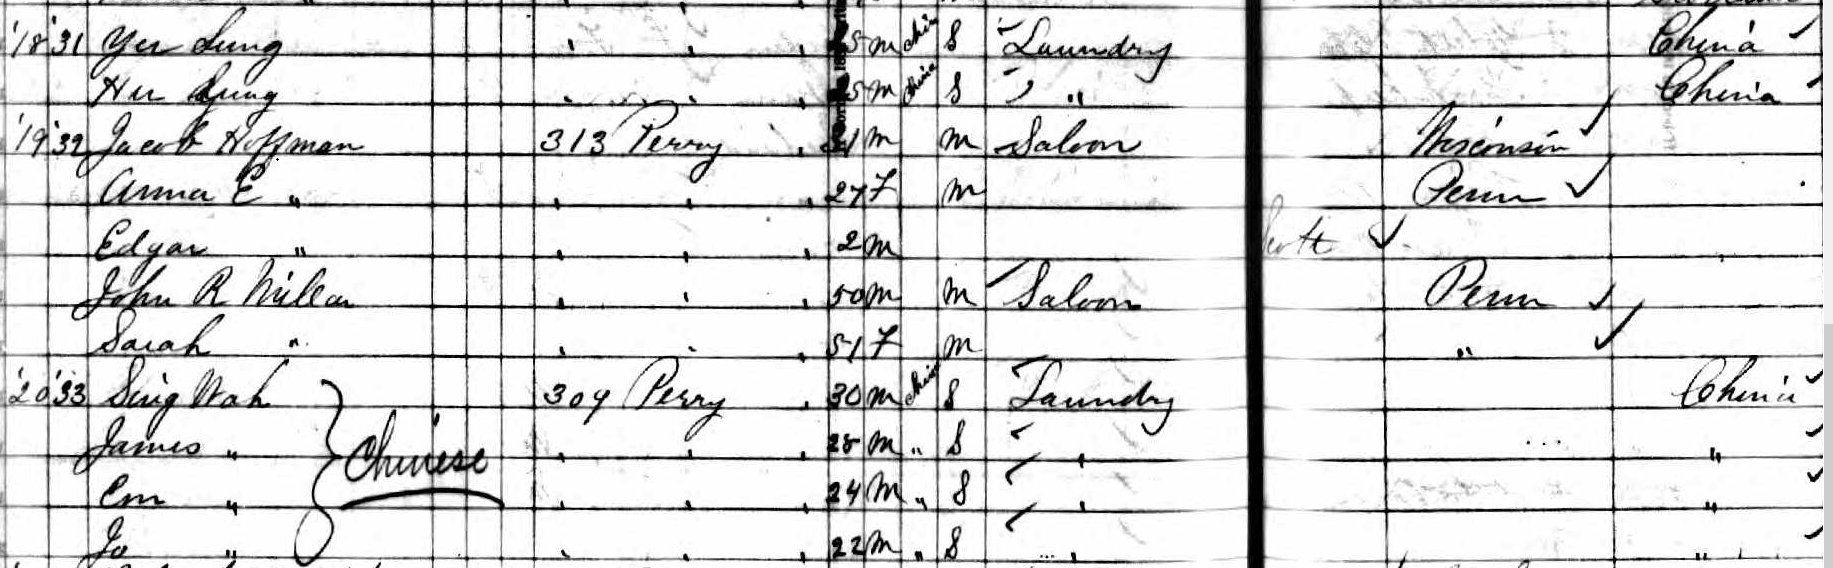 '18 '31 Yee Lung " " " 5 m chin S Laundry China
Her Gung " " " 25 m china S " China
'19 '32 Jacob Hoffman 313 Perry " 31 m m Saloon Wisconsin
Anna E " " " " 27 F m Penn
Edgar " " " " 2 m Scott
John R Miller " " " 50 m m Saloon Penn
Sarah " " " " 51 F m "
'20 '33 Sing Wah 309 Perry " 30 m chin S Laundry China
James " " " " 28 m " S " "
Chinese
Em " " " " 24 m " S " "
Jo " " " " 22 m " S " "